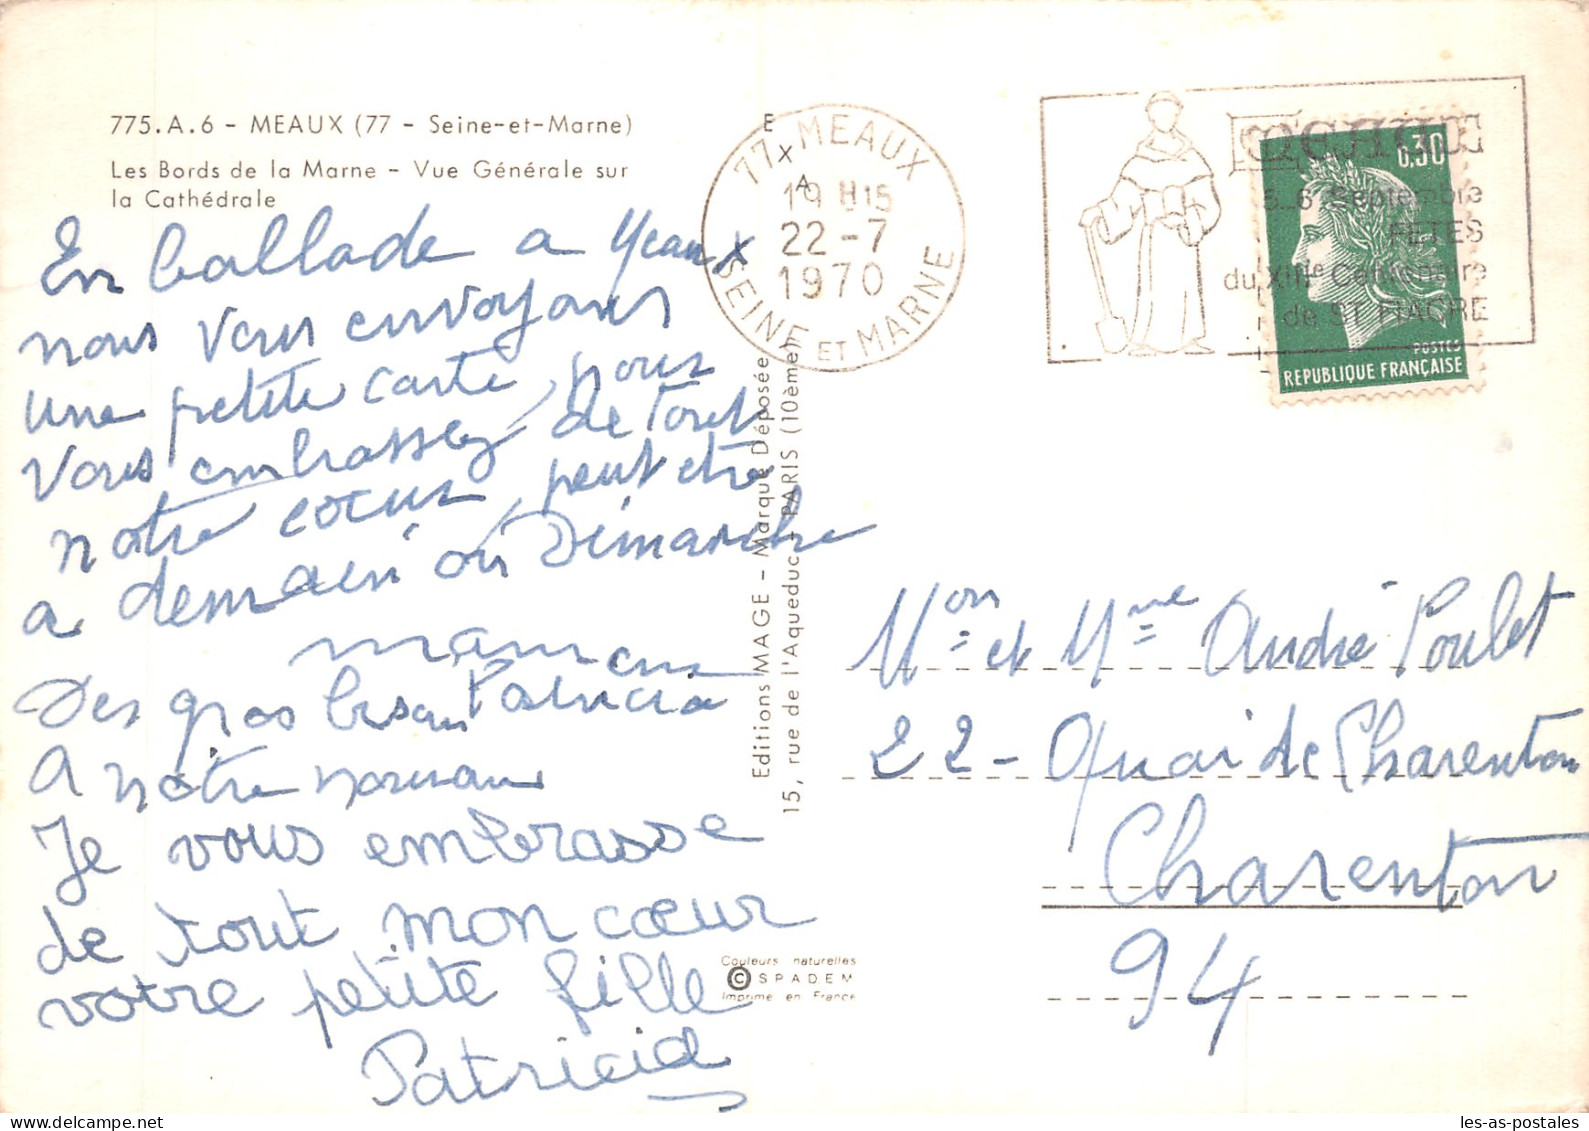 775.A.6 - MEAUX (77 - Seine-et-Marne)
Les Bords de la Marne - Vue Générale sur
la Cathédrale
En ballade a Meaux
nous vous envoyons
une petite carte, nous
vous embrassez de tout
notre coeur, peut etre
a demain ou Dimanche
Des gros Patricia
A notre
Je vous embrasse
de tout mon cœur
votre petite fille
Patricia
Editions MAGE - Marque Déposée
15, rue de l'Aqueduc - PARIS (10ème)
Couleurs naturelles
© SPADEM
Imprimé en France
77 MEAUX
19 H15
22-7
1970
SEINE ET MARNE
MEAUX
5_6 Septembre
FETES
du XIIIe Centenaire
de ST FIACRE
0,30
POSTES
REPUBLIQUE FRANÇAISE
Mon et Mme André Poulet
22 - Quai de Charenton
Charenton
94
les-as-postales